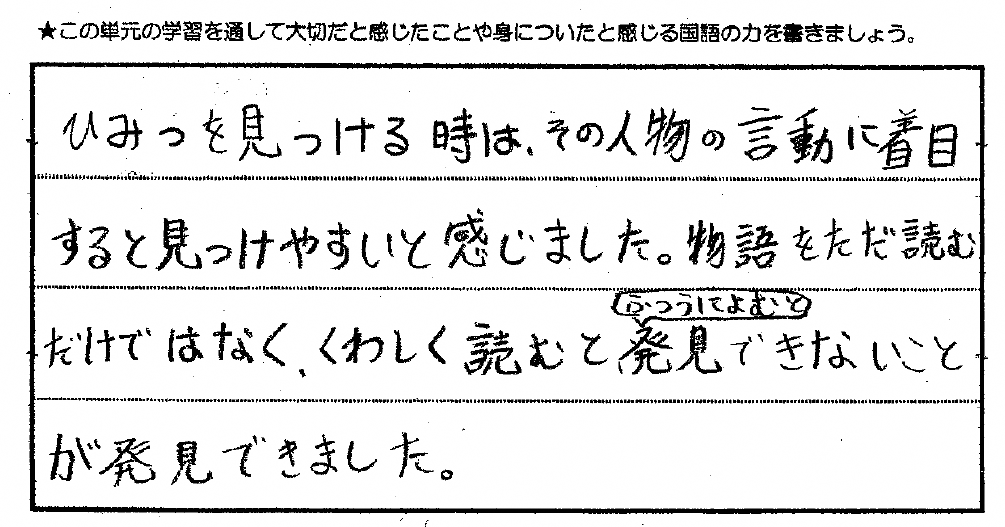 ★この単元の学習を通して大切だと感じたことや身についたと感じる国語の力を書きましょう。
ひみつを見つける時は、その人物の言動に着目
すると見つけやすいと感じました。物語をただ読む
ふつうによむと
だけではなく、くわしく読むと発見できないこと
が発見できました。